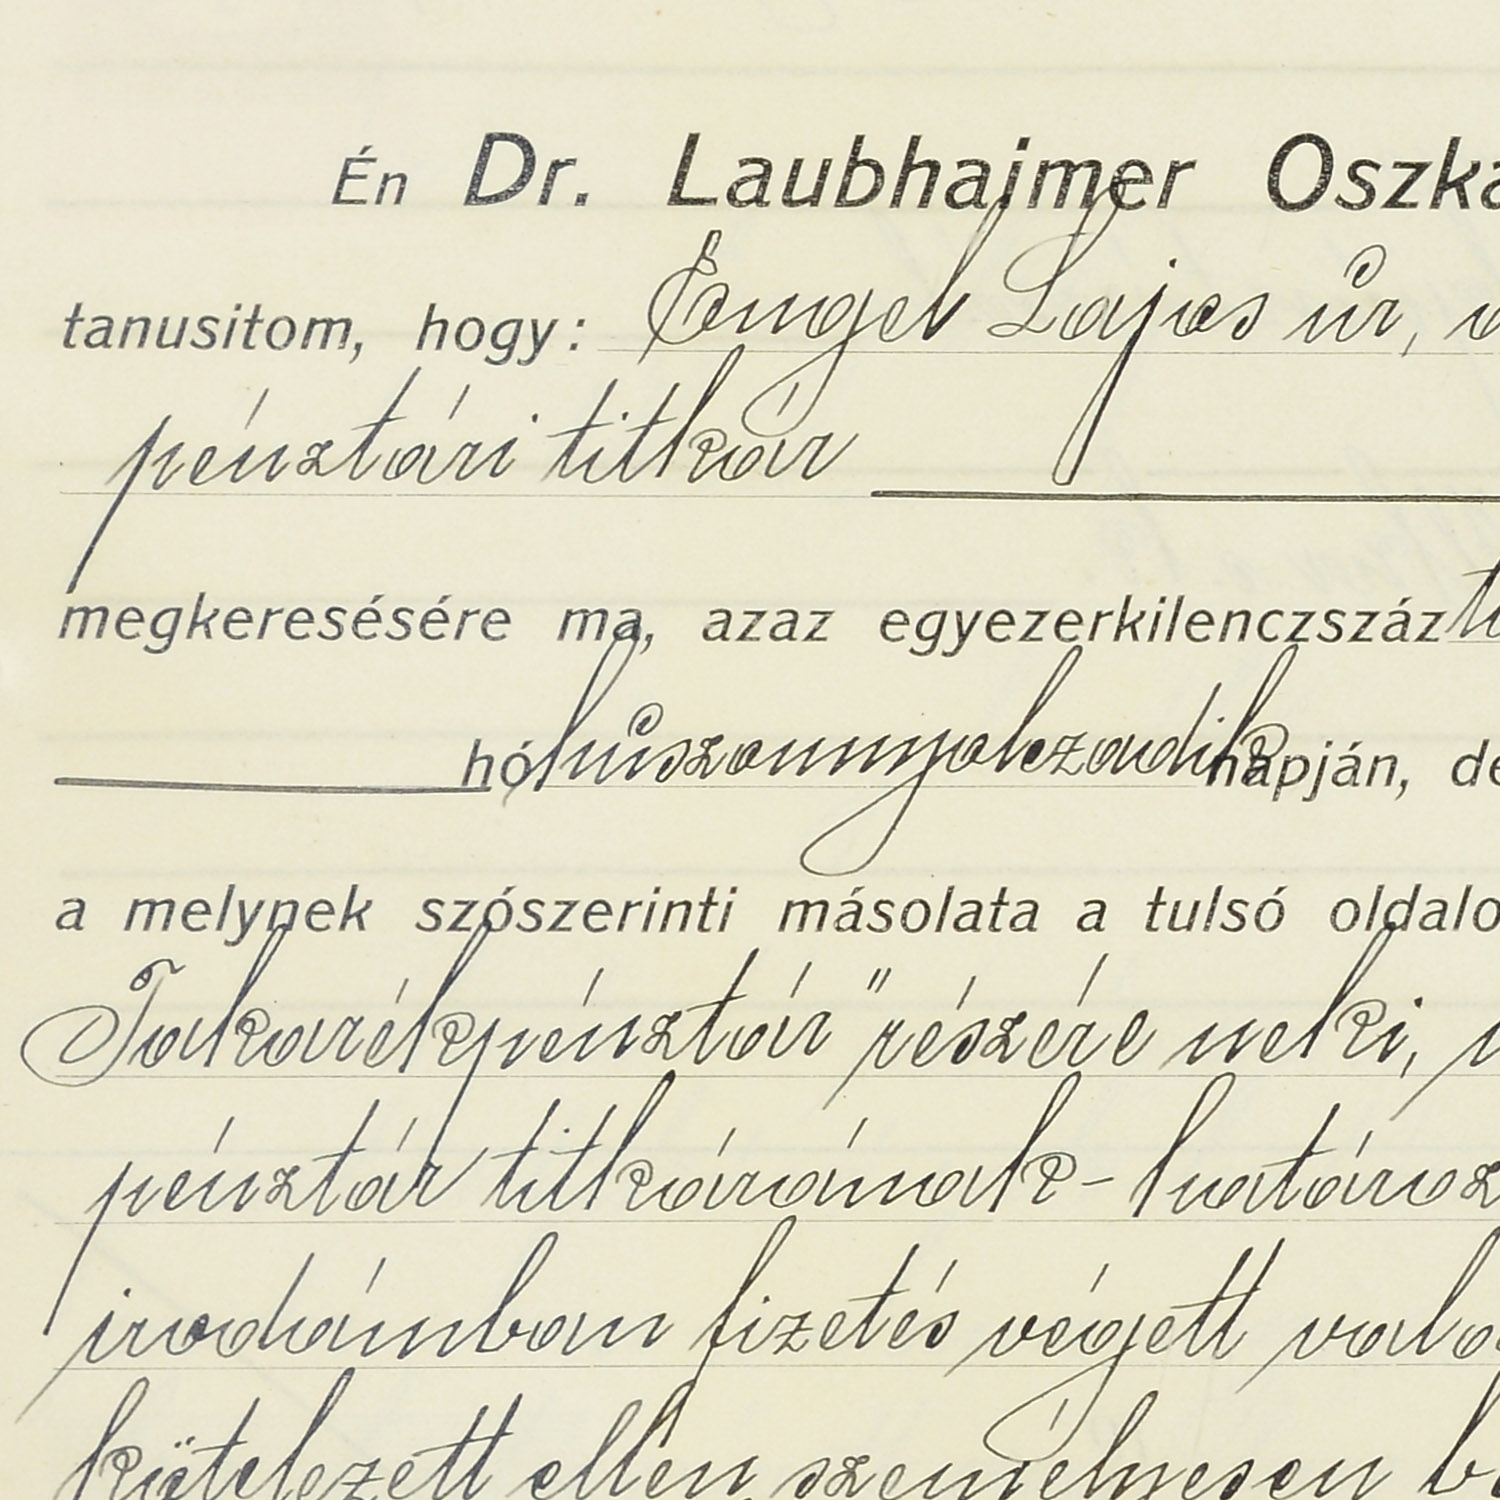 Én Dr. Laubhaimer Oszká
tanusitom, hogy: Engel Lajos úr,
pénztári titkár
megkeresésére ma, azaz egyezerkilenczszáz
hó húszonnyolczadik napján, de
a melynek szószerinti másolata a tulsó oldalo
Takarékpénztár" részére neki,
pénztár titkárának - határoz
irodámban fizetés végett való
kötelezett ellen, személyesen be